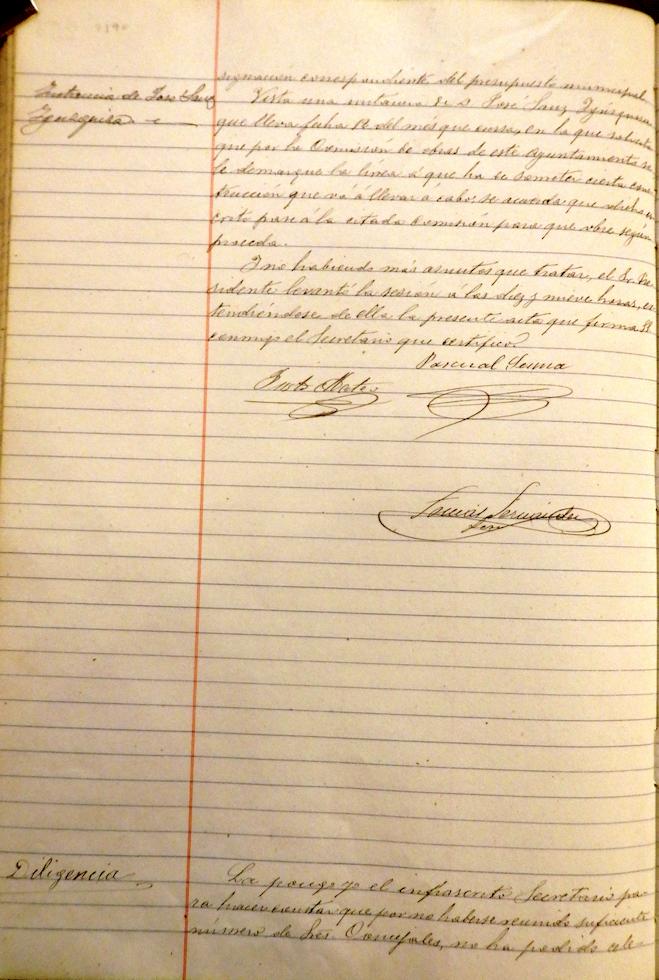 signación correspondiente del presupuesto municipal.
Instancia de José Sanz
Vista una instancia de D. José Sanz
que lleva fecha 12 del mes que cursa, en la que solicita
que por la Comisión de obras de este Ayuntamiento se
le demarque la línea á que ha de someter cierta cons-
trucción que vá á llevar á cabo; se acuerda que dicho es-
crito pase á la citada Comisión para que obre según
proceda.
Y no habiendo más asuntos que tratar, el Sr. Pre-
sidente levantó la sesión á las diez y nueve horas, ex-
tendiéndose de ella la presente acta que firma S.S.
conmigo el Secretario que certifico.
Pascual
Mateo
Tomás Fernández
Diligencia
La pongo yo el infrascrito Secretario pa-
ra hacer constar que por no haberse reunido suficiente
número de Sres. Concejales, no ha podido cele-